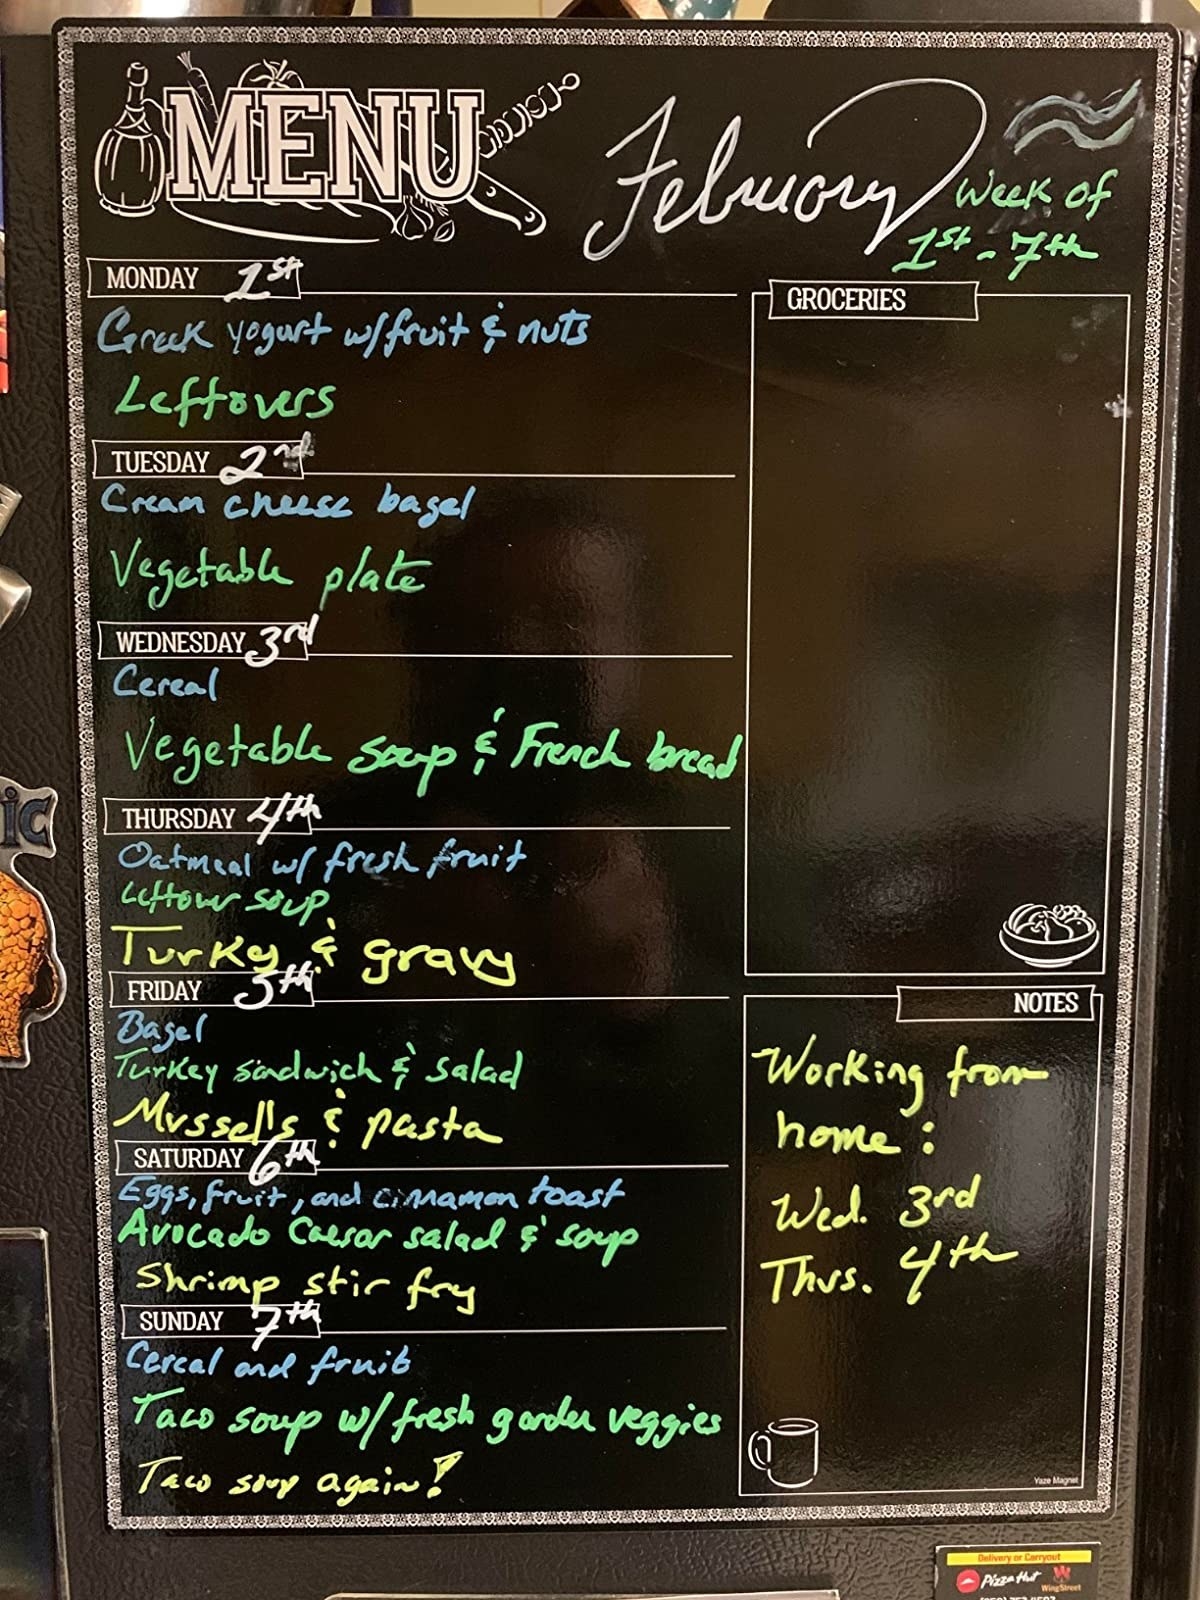 MENU
February
Week of
1st - 7th
MONDAY 1st
Greek yogurt w/fruit & nuts
Leftovers
TUESDAY 2nd
Cream cheese bagel
Vegetable plate
WEDNESDAY 3rd
Cereal
Vegetable soup & French bread
THURSDAY 4th
Oatmeal w/ fresh fruit
Leftover soup
Turkey & gravy
FRIDAY 5th
Bagel
Turkey sandwich & salad
Mussells & pasta
SATURDAY 6th
Eggs, fruit, and cinnamon toast
Avocado Caesar salad & soup
Shrimp stir fry
SUNDAY 7th
Cereal and fruit
Taco soup w/ fresh garden veggies
Taco soup again!
GROCERIES
NOTES
Working from
home:
Wed. 3rd
Thus. 4th
Yaze Magnet
ic
Delivery or Carryout
Pizza Hut
WingStreet